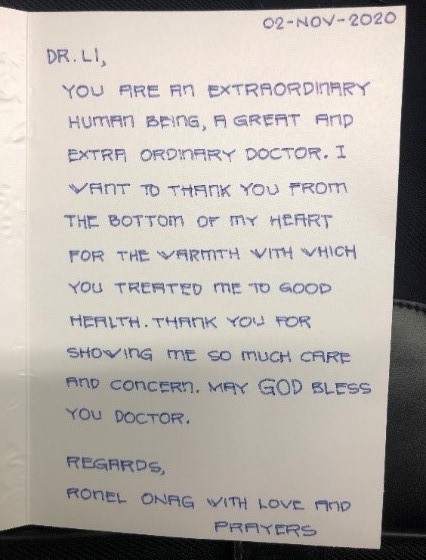 02-NOV-2020
DR. LI,
YOU ARE AN EXTRAORDINARY
HUMAN BEING, A GREAT AND
EXTRA ORDINARY DOCTOR. I
WANT TO THANK YOU FROM
THE BOTTOM OF MY HEART
FOR THE WARMTH WITH WHICH
YOU TREATED ME TO GOOD
HEALTH. THANK YOU FOR
SHOWING ME SO MUCH CARE
AND CONCERN. MAY GOD BLESS
YOU DOCTOR.
REGARDS,
RONEL ONAG WITH LOVE AND
PRAYERS